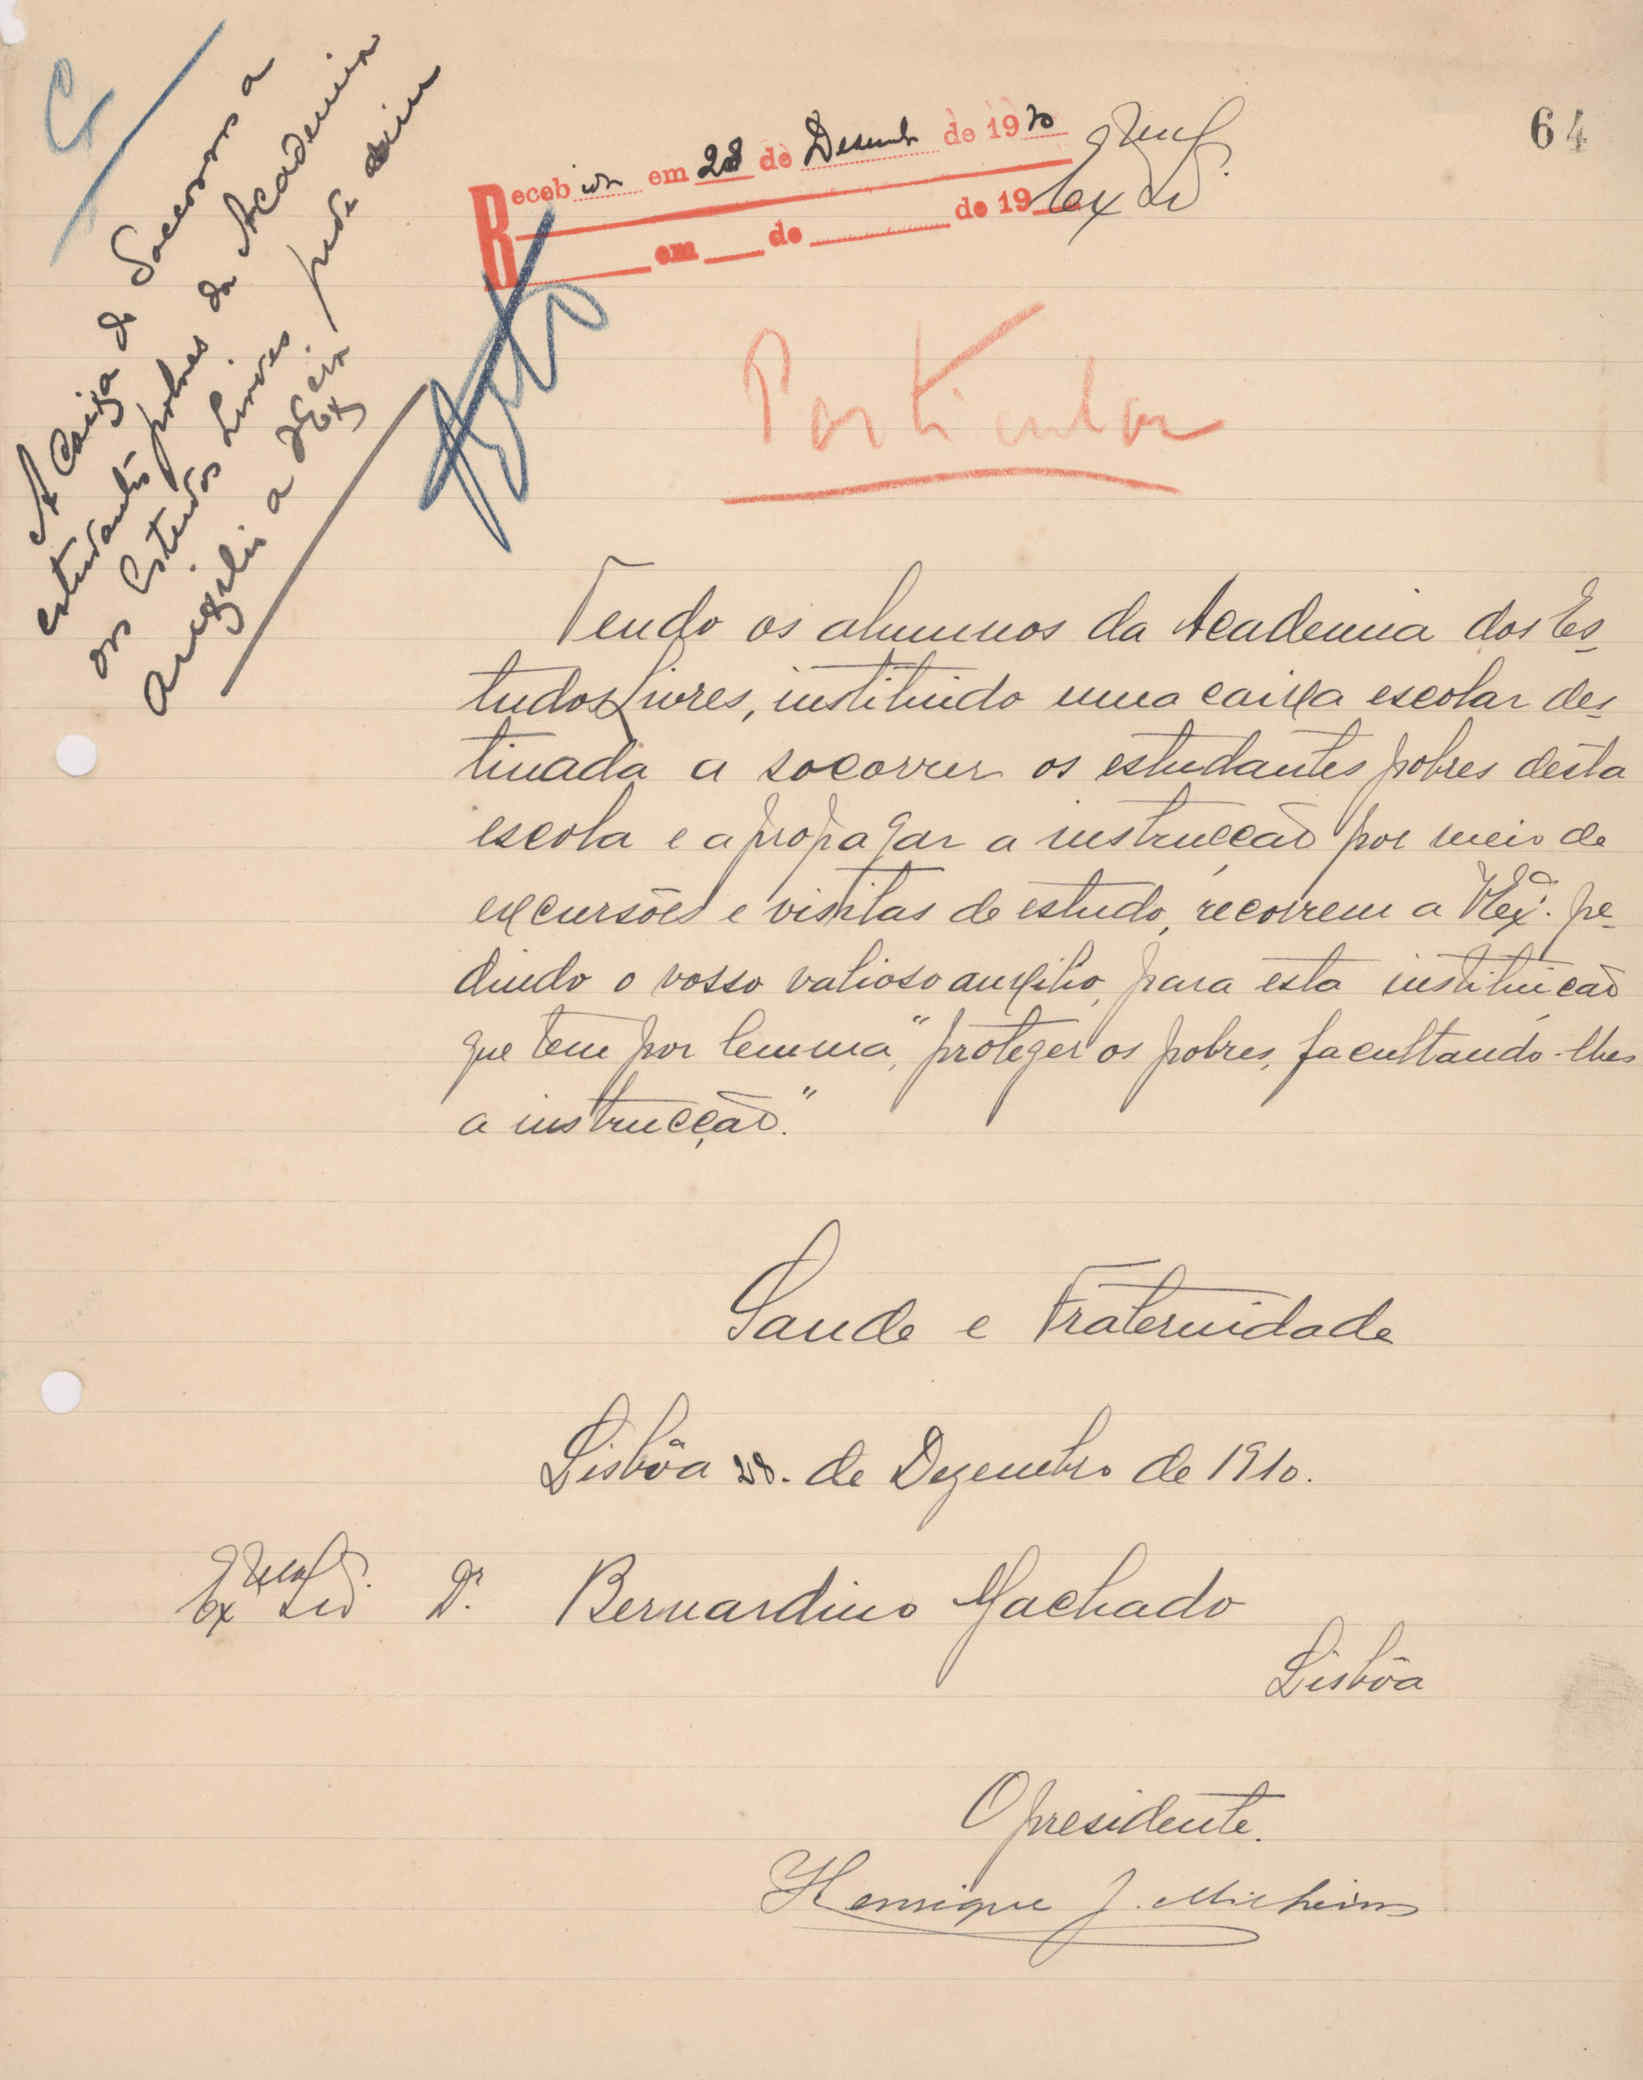 64
Recebido em 28 de Desembro de 1910
em de de 19
Exmo Snr.
A Caixa de Soccorros a
estudantes pobres da Academia
dos Estudos Livres pede
auxilio a V. Excia
Particular
Tendo os alumnos da Academia dos Es-
tudos Livres, instituido uma caixa escolar des-
tinada a socorrer os estudantes pobres desta
escola e a propagar a instrucção por meio de
excursões e visitas de estudo, recorrem a V. Exa. pe-
dindo o vosso valioso auxilio, para esta instituição
que tem por lemma, "proteger os pobres, facultando-lhes
a instrucção."
Saude e Fraternidade
Lisbôa 28. de Dezembro de 1910.
Exmo Snr. Dr. Bernardino Machado
Lisbôa
O presidente.
Henrique J.